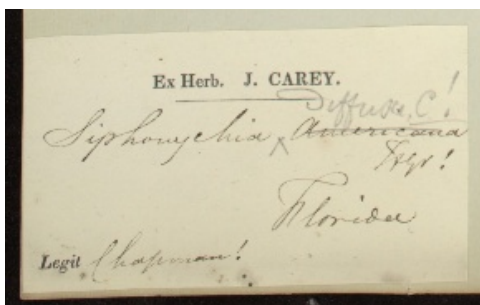 Ex Herb. J. CAREY.
Diffusa, C!
Siphonychia Americana
T&Gr!
Florida
Legit Chapman!